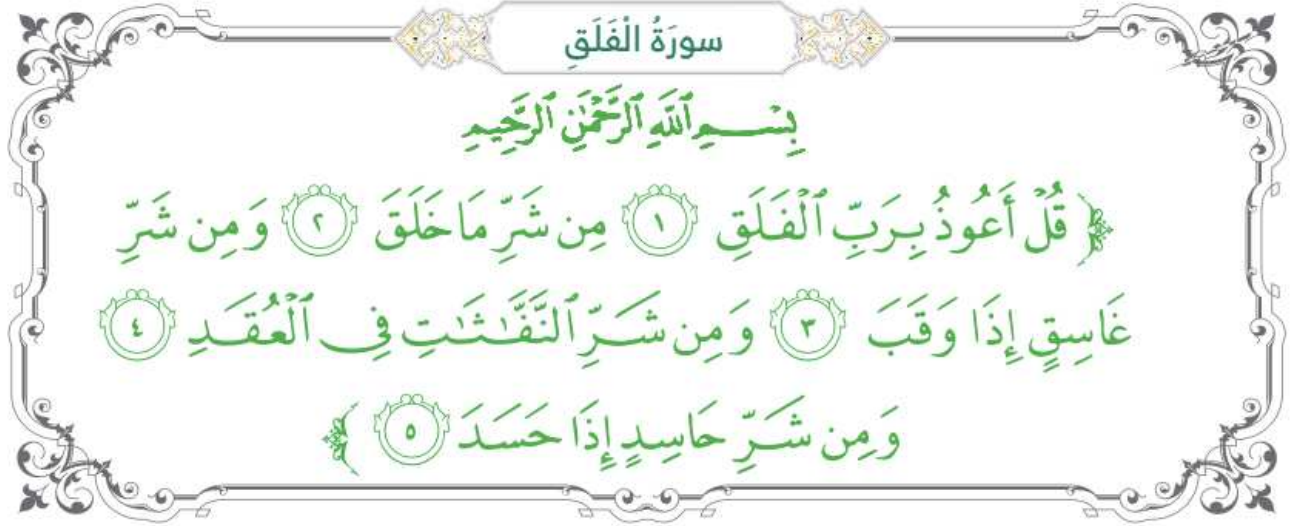 سورَةُ الْفَلَقِ
بِسْمِ ٱللَّهِ ٱلرَّحْمَٰنِ ٱلرَّحِيمِ
﴿ قُلْ أَعُوذُ بِرَبِّ ٱلْفَلَقِ ١ مِن شَرِّ مَا خَلَقَ ٢ وَمِن شَرِّ
غَاسِقٍ إِذَا وَقَبَ ٣ وَمِن شَرِّ ٱلنَّفَّٰثَٰتِ فِى ٱلْعُقَدِ ٤
وَمِن شَرِّ حَاسِدٍ إِذَا حَسَدَ ٥ ﴾